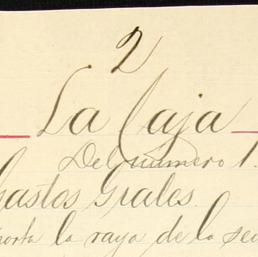 2
La Caja
Del número 1.
Gastos Grales.
porta la raya de la se